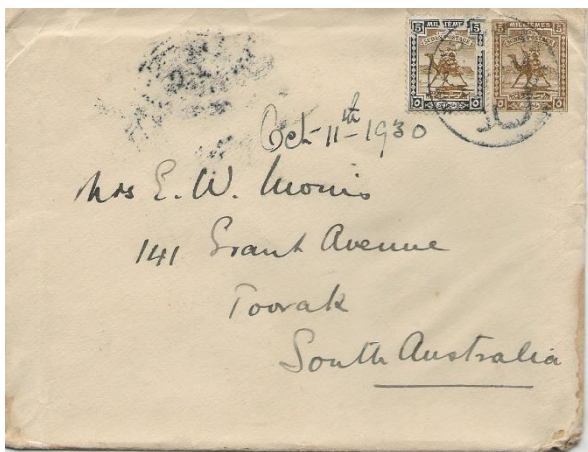 5 MILLIEMES 5
5 MILLIEMES 5
Oct-11th-1930
Mrs E. W. Morris
141 Grant Avenue
Toorak
South Australia